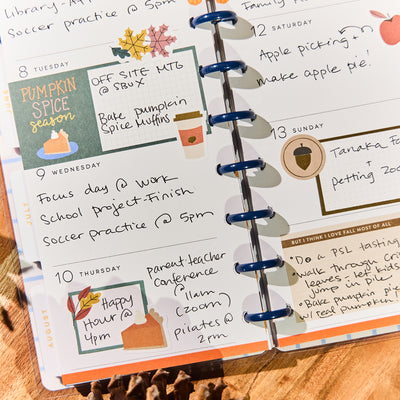 Soccer practice @ 5pm
8 TUESDAY
PUMPKIN
SPICE
season
OFF SITE MTG
@ SBUX
Bake pumpkin
Spice Muffins
9
WEDNESDAY
Focus day @ work
School project-Finish
Soccer practice @ 5pm
10 THURSDAY
Happy
Hour @
4pm
parent teacher
Conference
@
11am
(zoom)
pilates @
2pm
JULY
AUGUST
Family
12 SATURDAY
Apple picking +
make apple pie!
13 SUNDAY
Tanaka
+
petting zoo
BUT I THINK I LOVE FALL MOST OF ALL
• Do a PSL tasting
• walk through
leaves - let kids
jump in pile
• Bake pumpkin
w/ real pumpkin